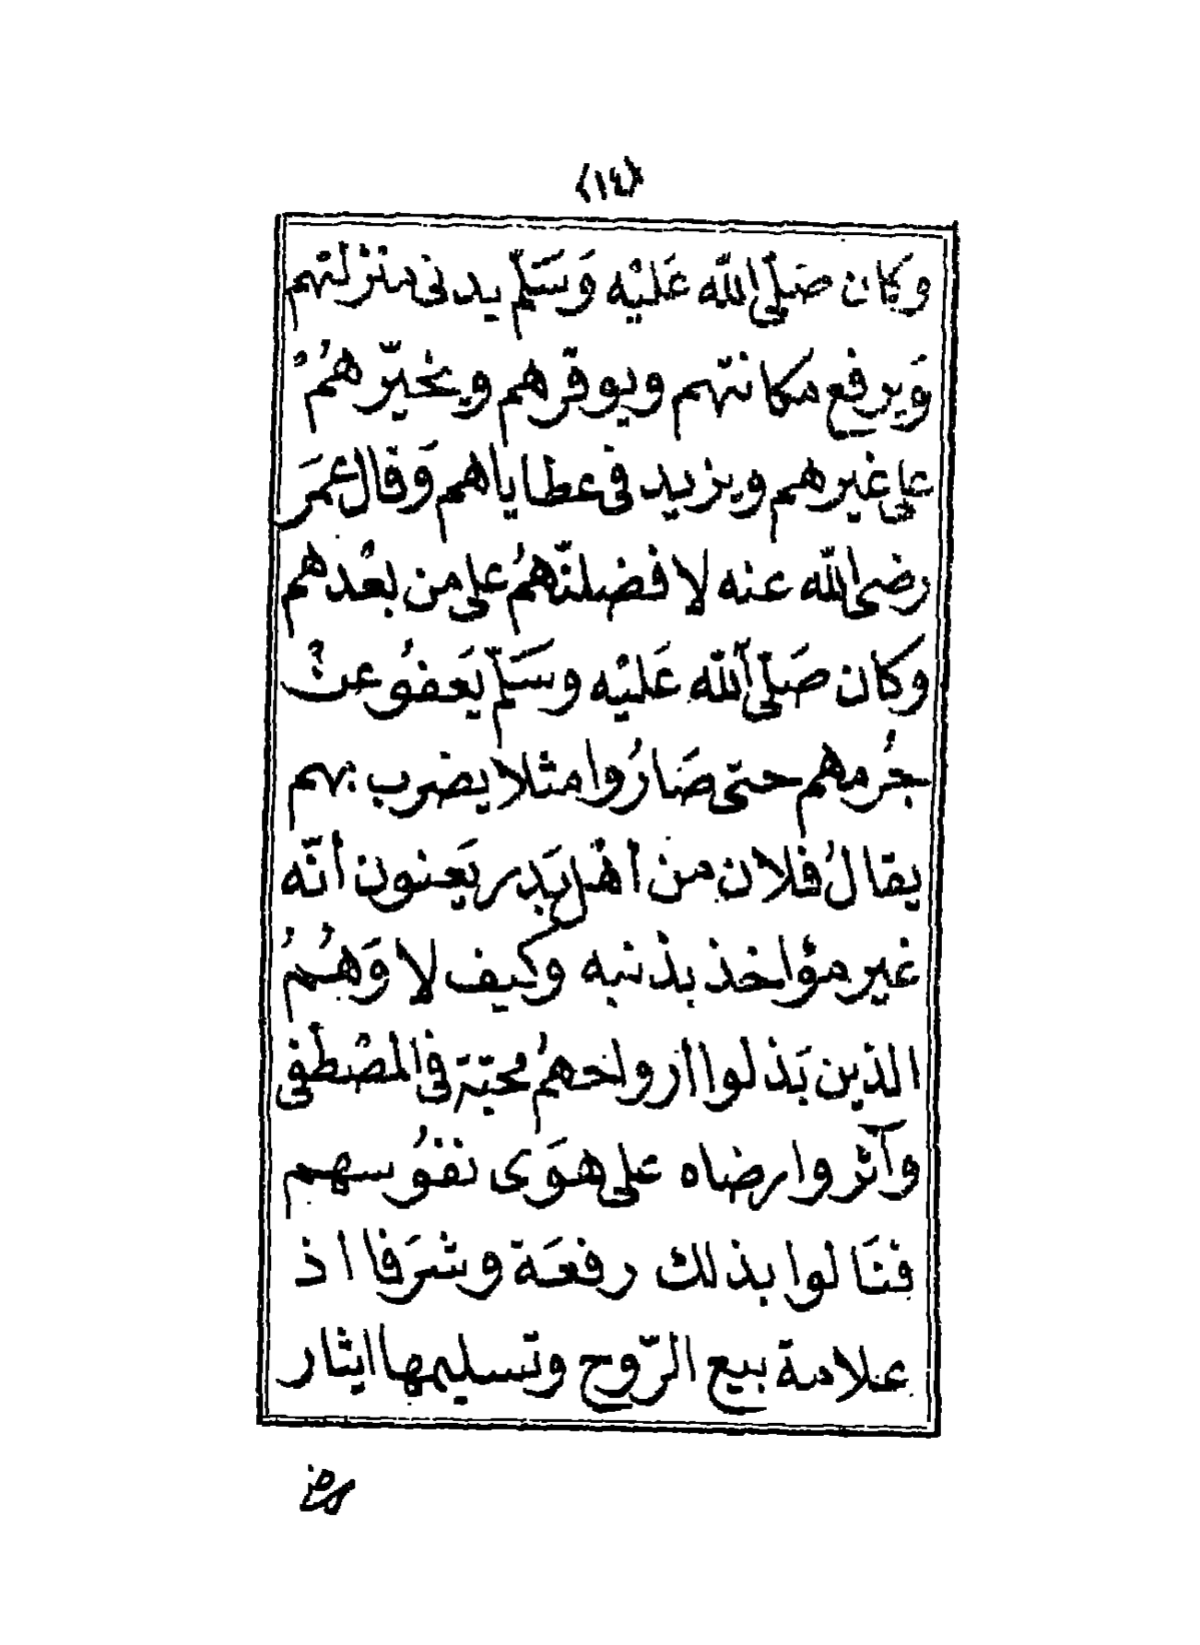 ﴿١٤﴾
وَكان صَلّى الله عَليْه وَسَلّم يدنى منزلتهم
وَيرفع مكانتهم ويوقرهم ويخيّرهُمْ
على غيرهم ويزيد فى عطاياهم وَقال عمَر
رضى الله عنه لا فضلنّهمُ على من بعْدهم
وَكان صَلّى ألله عَليْه وسَلّم يَعفوُ عنْ
جرُمهم حتّى صَارُوا مثلا يضرب بهم
يقالُ فلان من أهْل بَدر يَعنون أنّه
غير مؤاخذ بذنبه وكيف لا وَهُمُ
الذين بَذلوا أرواحهمُ محبّة فى المصْطفى
وآثروا رضاه على هوَى نفوُسهم
فنَالوا بذلك رفعَة وشرَفا اذ
علامة بيع الرّوح وتسليمها ايثار